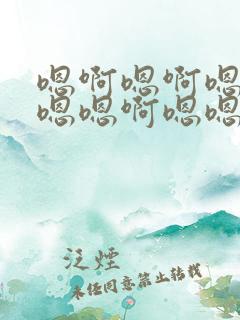 嗯啊嗯啊嗯
嗯嗯啊嗯嗯
泛煙
未经同意禁止转载